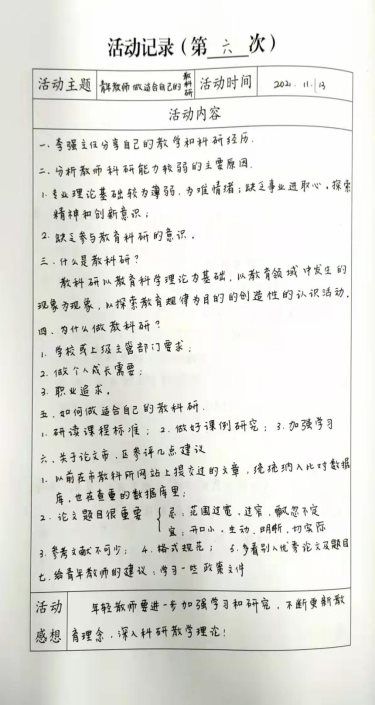 活动记录（第 六 次）
活动主题 青年教师做适合自己的教科研 活动时间 2021.11.13
活动内容
一、李强主任分享自己的教学和科研经历.
二、分析教师科研能力较弱的主要原因.
1. 专业理论基础较为薄弱，为难情绪；缺乏事业进取心。探索
精神和创新意识；
2. 缺乏参与教育科研的意识。
三、什么是教科研？
教科研以教育科学理论为基础，以教育领域中发生的
现象为现象，以探索教育规律为目的的创造性的认识活动.
四、为什么做教科研？
1. 学校或上级主管部门要求；
2. 做个人成长需要；
3. 职业追求。
五、如何做适合自己的教科研.
1. 研读课程标准；2. 做好课例研究；3. 加强学习
六、关于论文市、区参评几点建议
1. 以前在市教科所网站上提交过的文章，统统纳入比对数据
库，也在查重的数据库里；
2. 论文题目很重要 { 忌：范围过宽，过窄，飘忽不定
宜：开口小，生动，明晰，切实际
3. 参考文献不可少； 4. 格式规范； 5. 多看别人优秀论文及题目
七、给青年教师的建议：学习一些政策文件
活动感想 年轻教师要进一步加强学习和研究，不断更新教
育理念，深入科研教学理论！